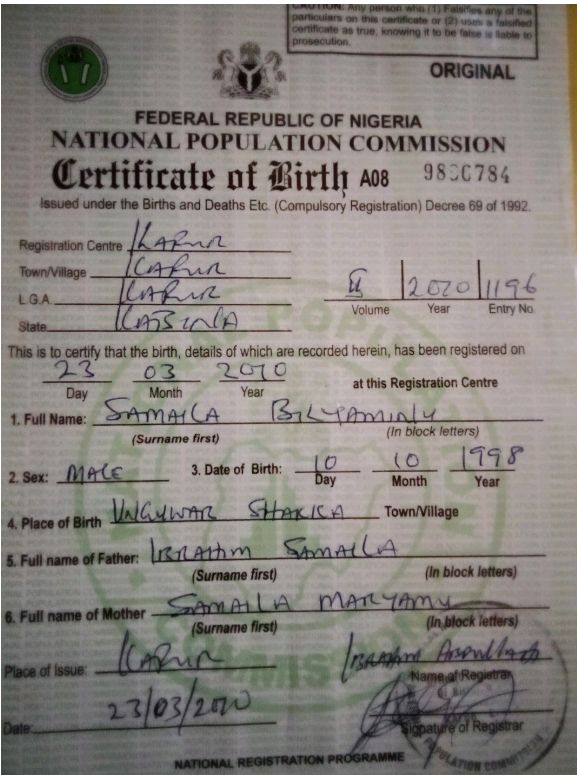 CAUTION: Any person who (1) Falsifies any of the
particulars on this certificate or (2) uses a falsified
certificate as true, knowing it to be false is liable to
prosecution.
ORIGINAL
FEDERAL REPUBLIC OF NIGERIA
NATIONAL POPULATION COMMISSION
Certificate of Birth A08
Issued under the Births and Deaths Etc. (Compulsory Registration) Decree 69 of 1992.
Registration Centre KAFUR
Town/Village KAFUR
L.G.A. KAFUR
II 2020 1196
Volume Year Entry No.
State KATSINA
This is to certify that the birth, details of which are recorded herein, has been registered on
23 03 2020
Day Month Year at this Registration Centre
1. Full Name: SAMAILA BILYAMINU
(Surname first) (In block letters)
2. Sex: MALE 3. Date of Birth: 10 10 1998
Day Month Year
4. Place of Birth UNGUWAR Town/Village
5. Full name of Father: IBRAHIM SAMAILA
(Surname first) (In block letters)
6. Full name of Mother SAMAILA MARYAMU
(Surname first) (In block letters)
Place of Issue: KAFUR IBRAHIM
Name of Registrar
Date: 23/03/2020
Signature of Registrar
NATIONAL REGISTRATION PROGRAMME
POPULATION COMMISSION